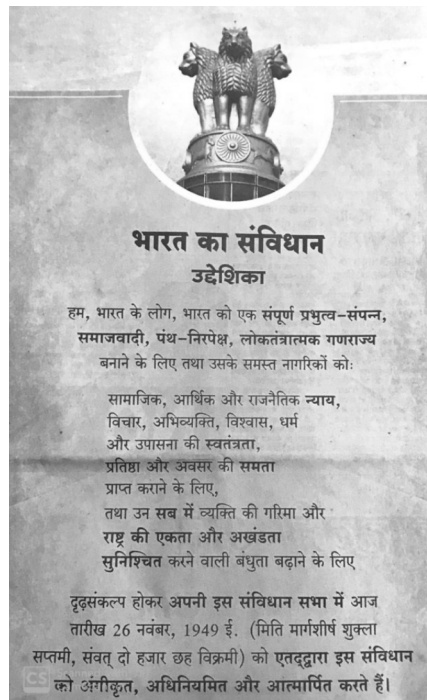 भारत का संविधान
उद्देशिका
हम, भारत के लोग, भारत को एक संपूर्ण प्रभुत्व-संपन्न,
समाजवादी, पंथ-निरपेक्ष, लोकतंत्रात्मक गणराज्य
बनाने के लिए तथा उसके समस्त नागरिकों को:
सामाजिक, आर्थिक और राजनैतिक न्याय,
विचार, अभिव्यक्ति, विश्वास, धर्म
और उपासना की स्वतंत्रता,
प्रतिष्ठा और अवसर की समता
प्राप्त कराने के लिए,
तथा उन सब में व्यक्ति की गरिमा और
राष्ट्र की एकता और अखंडता
सुनिश्चित करने वाली बंधुता बढ़ाने के लिए
दृढ़संकल्प होकर अपनी इस संविधान सभा में आज
तारीख 26 नवंबर, 1949 ई. (मिति मार्गशीर्ष शुक्ला
सप्तमी, संवत् दो हजार छह विक्रमी) को एतद्द्वारा इस संविधान
को अंगीकृत, अधिनियमित और आत्मार्पित करते हैं।
CS